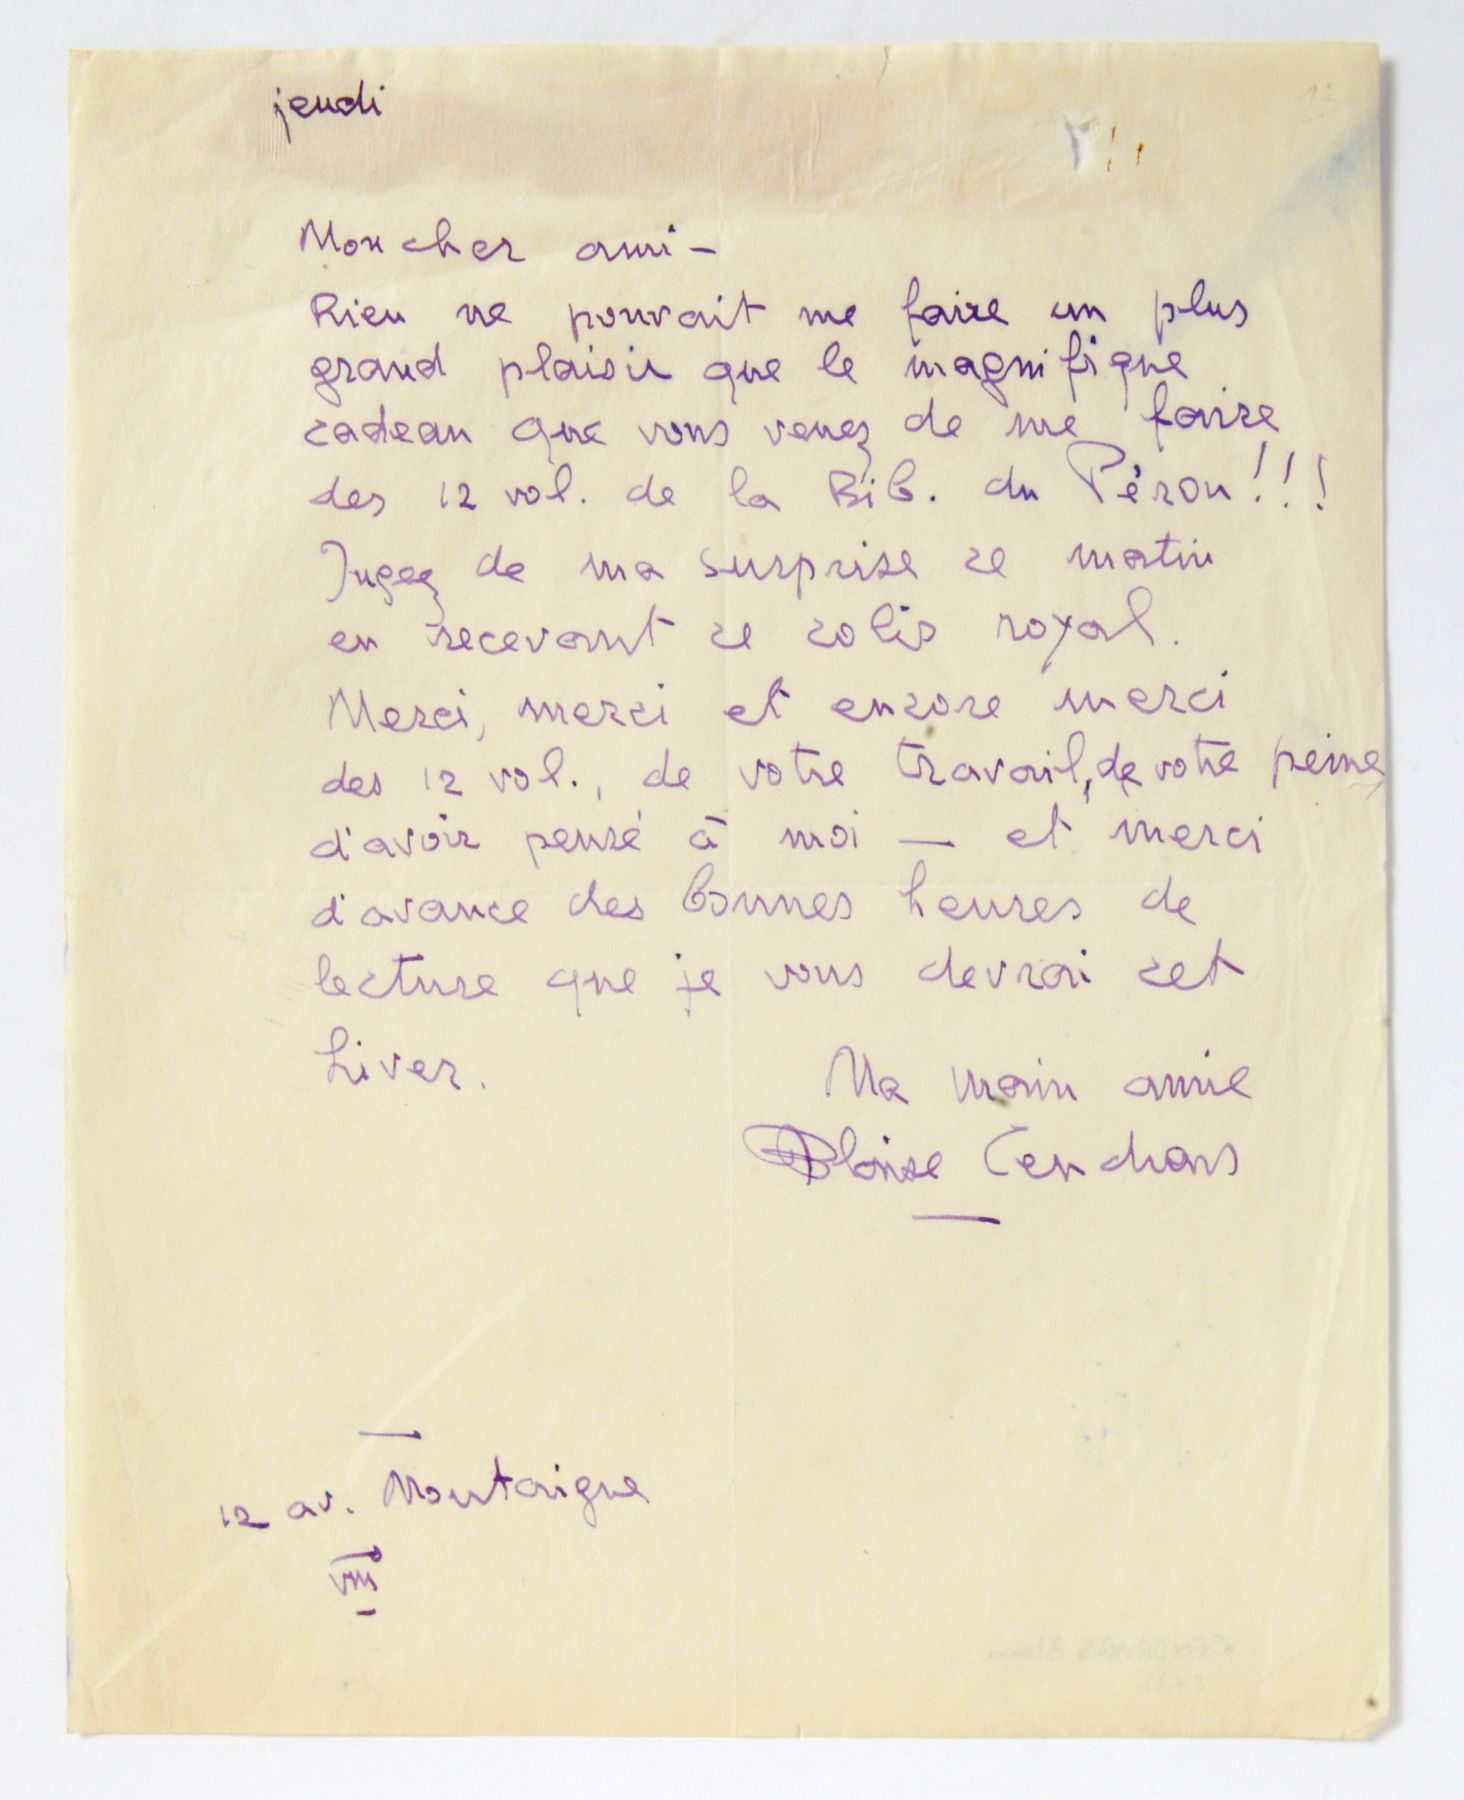 jeudi
Mon cher ami —
Rien ne pouvait me faire un plus
grand plaisir que le magnifique
cadeau que vous venez de me faire
des 12 vol. de la Bib. du Pérou!!!
Jugez de ma surprise ce matin
en recevant ce colis royal.
Merci, merci et encore merci
des 12 vol., de votre travail, de votre peine,
d'avoir pensé à moi — et merci
d'avance des bonnes heures de
lecture que je vous devrai cet
hiver.
Ma main amie
Blaise Cendrars
12 av. Montaigne
VIII